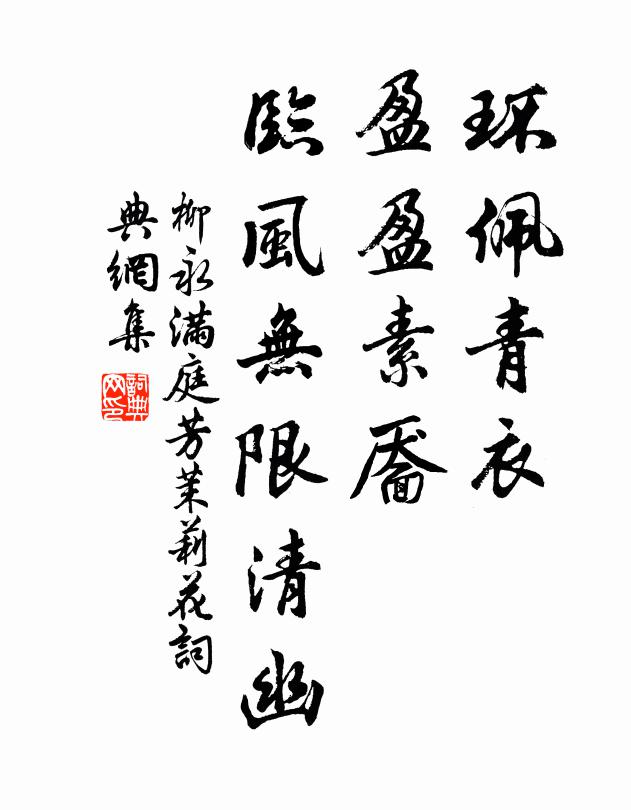 环佩青衣
盈盈素靨
臨風無限清幽
柳永滿庭芳茉莉花詞
典網集
詞典
网印